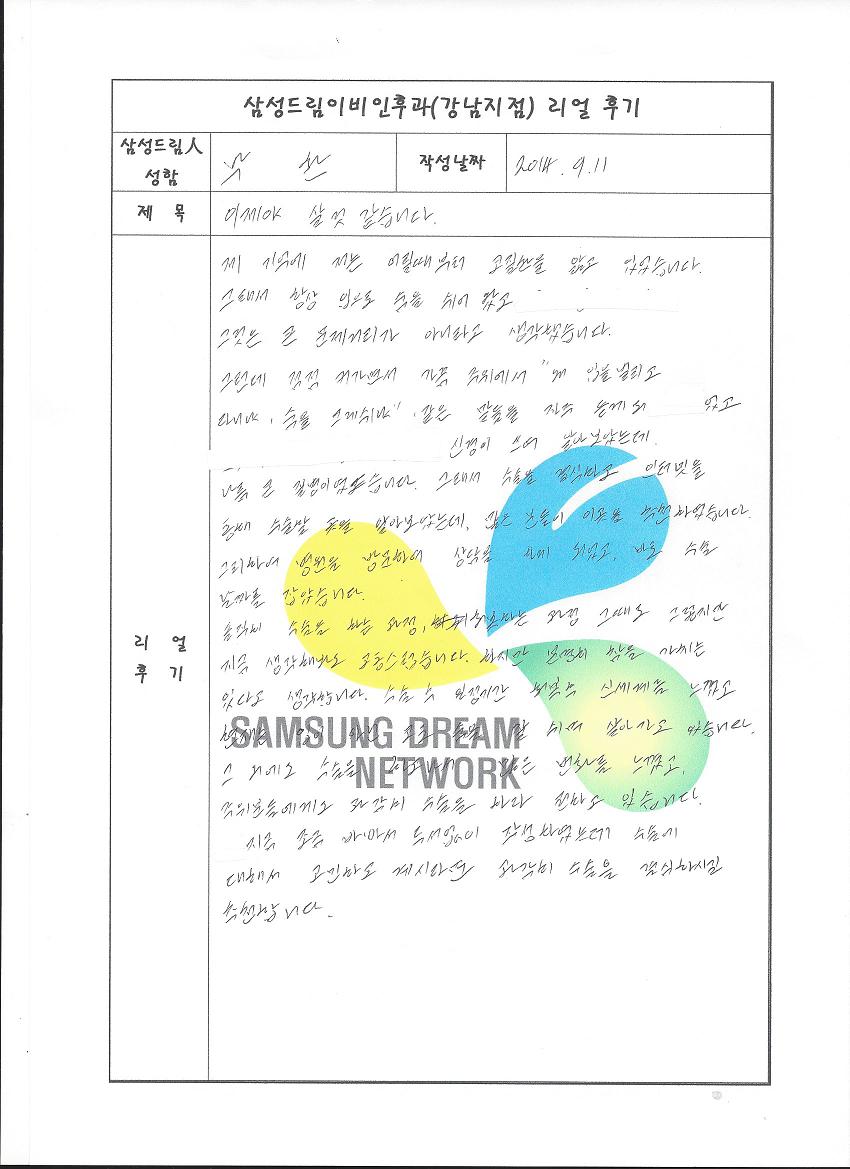 삼성드림이비인후과(강남지점) 리얼 후기
삼성드림人
성함
작성날짜
2014. 9. 11
제 목
이제야 살 것 같습니다.
리 얼
후 기
제 기억에 저는 어릴때부터 코질환을 앓고 있었습니다.
그래서 항상 입으로 숨을 쉬어 왔고
그것은 큰 문제거리가 아니라고 생각했습니다.
그런데 점점 커가면서 가끔 주위에서 "왜 입을 벌리고
다니냐, 숨을 크게쉬냐" 같은 말들을 자주 듣게 되 었고
신경이 쓰여 알아보았는데
나름 큰 질병이었습니다. 그래서 수술을 결심하고 인터넷을
통해 수술할 곳을 알아보았는데, 많은 분들이 이곳을 추천하였습니다.
그리하여 병원을 방문하여 상담을 하게 되었고, 바로 수술
날짜를 잡았습니다.
솔직히 수술을 하는 과정, 회복하는 과정 그때도 그렇지만
지금 생각해봐도 고통스럽습니다. 하지만 분명히 참을 가치는
있다고 생각합니다. 수술 후 일정시간 회복후 신세계를 느꼈고
현재는 입이 아닌 코로 숨을 잘 쉬며 살아가고 있습니다.
그 외에도 수술을 많은 변화를 느꼈고,
주위분들에게도 과감히 수술을 하라 권하고 있습니다.
지금 조금 바빠서 두서없이 작성하였는데 수술에
대해서 고민하고 계시다면 과감히 수술을 결심하시길
추천합니다.
SAMSUNG DREAM
NETWORK